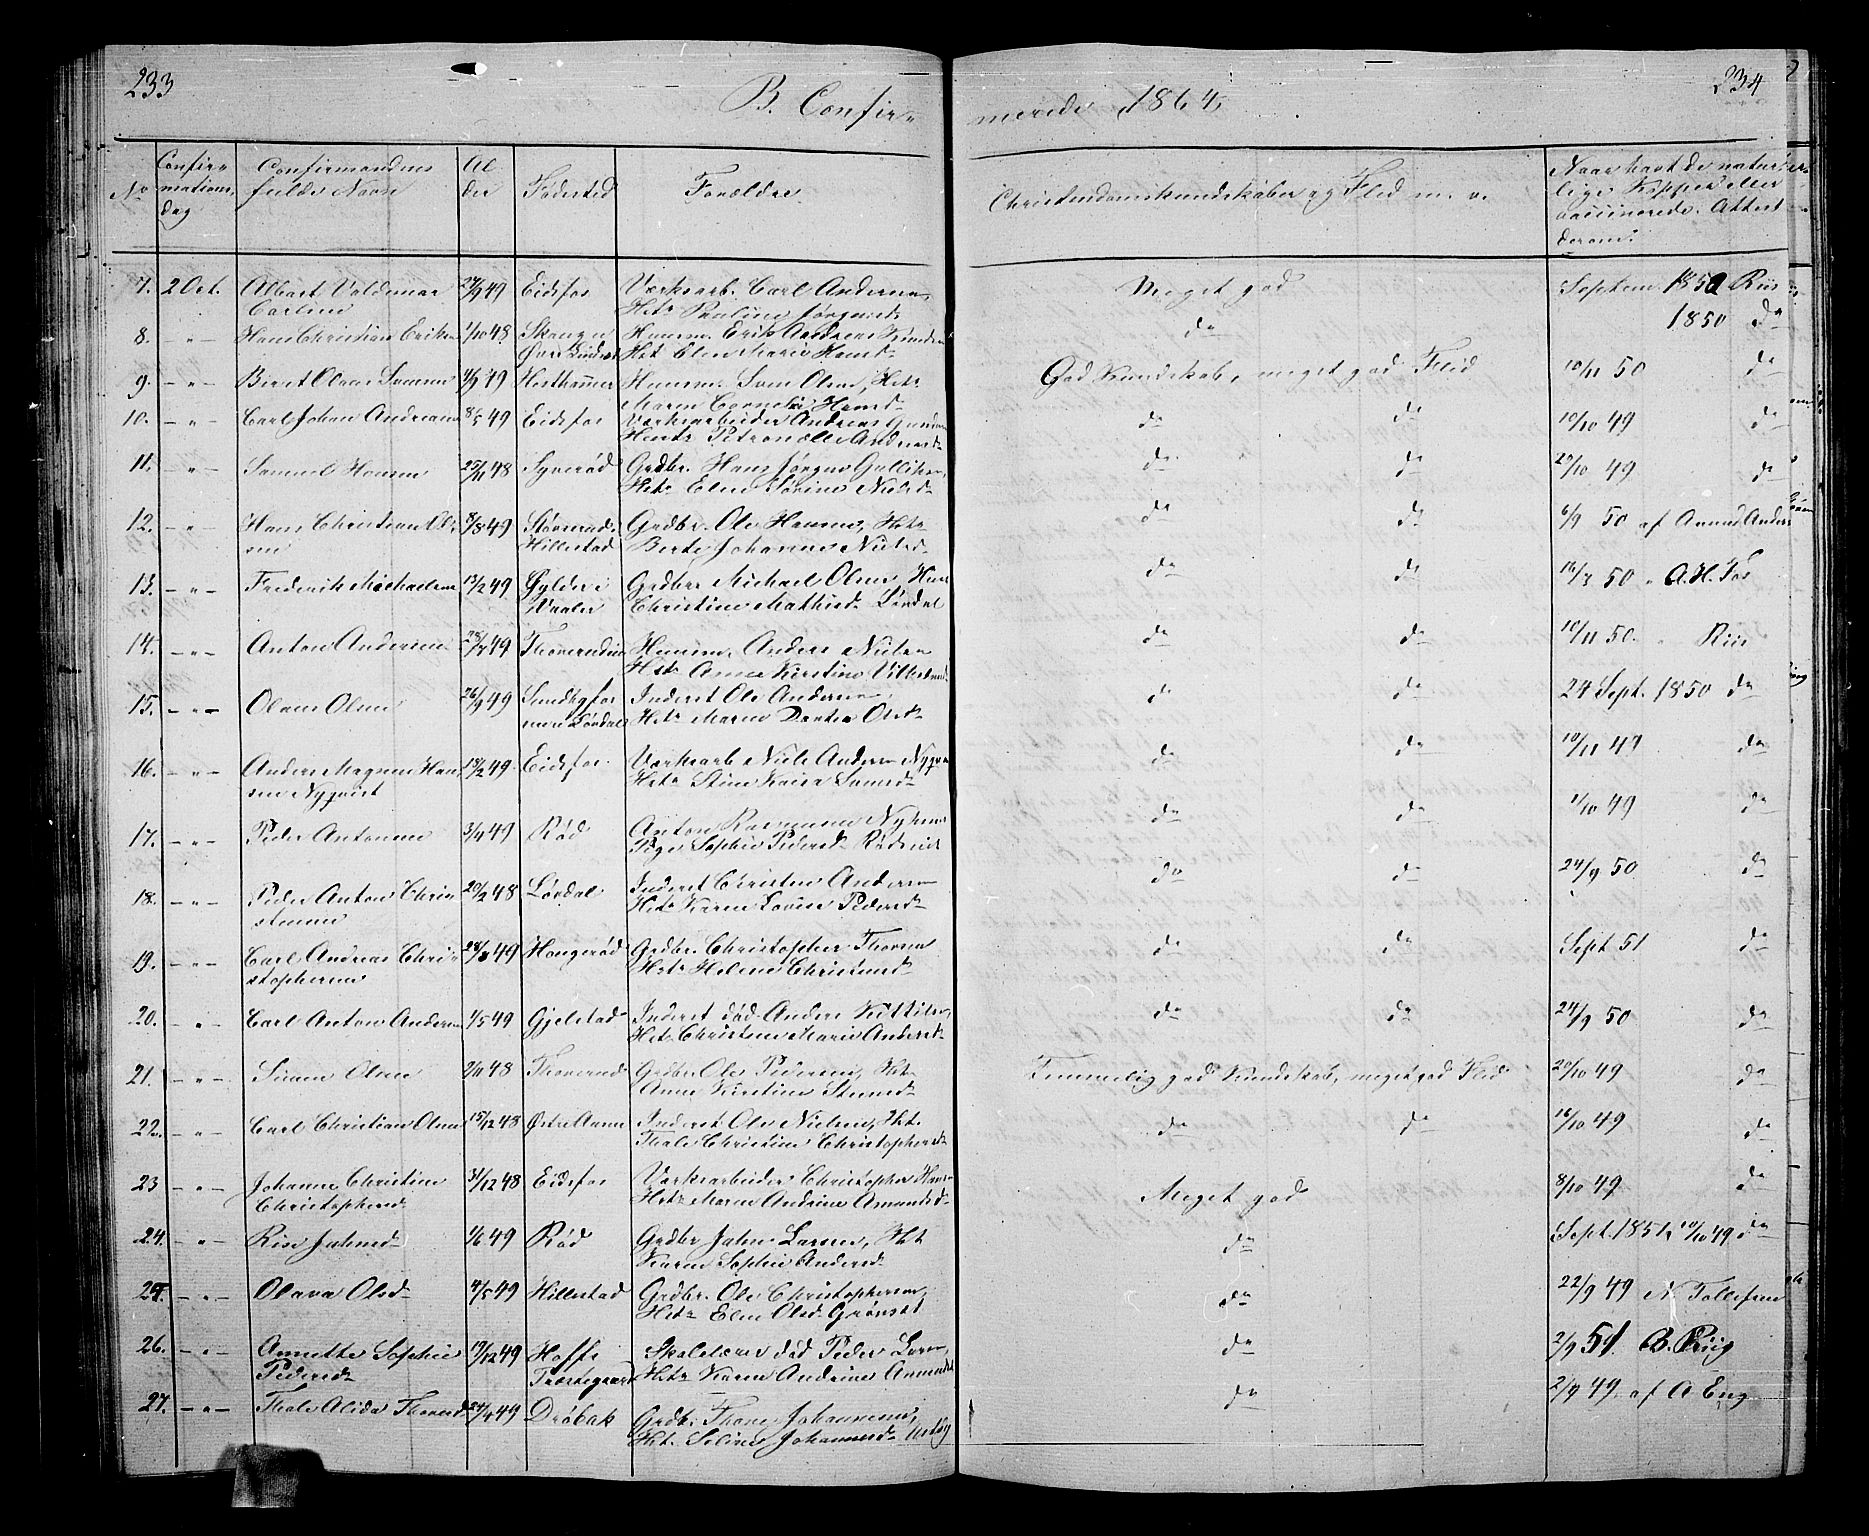 233
234
B. Confir-
merede 1864.
No
Confir-
mations
dag
Confirmandens
fulde Navn
Al
der
Fødested
Forældre.
Christendomskundskaber og Flid m. v.
Naar havt de natur-
lige Kopper eller
vaccinerede. Attest
derom.
7. 2 Oct. Albert Valdemar 27/9 49 Eidsfos Værksarb. Carl Andersen Meget god Septem 1850 Riis
Carlsen Hst: Pauline
8. -"- Hans Christian Eriksen 1/10 48 Huusm. Erik Andreas do 1850 do
Hst. Elen Marie Hansd.
9. -"- Olaus Svensen 49 Husm. Sven Olsen, Hst: God Kundskab, meget god Flid 10/11 50 do
Maren Cornelia Hansd.
10. -"- Carl Johan Andreasen 8/5 49 Eidsfos Værksarbeider Andreas do do 10/10 49 do
Hustr. Petronelle Andersd.
11. -"- Samuel Hansen 25/11 48 Syverød Grdbr. Hans Jørgen Gulliksen, do do 20/10 49 do
Hst: Elen Sørine Nielsd.
12. -"- Hans Christian Ol- 8/8 49 Grdbr. Ole Hansen, Hst: do do 6/9 50 af Amund Anders
sen Hillestad Berte Johanne Nielsd.
13. -"- Frederik Michaelsen 13/2 49 i Grdbr. Michael Olsen, do do 16/7 50 " A. H. Fos
Vaaler Christine Mathisd. Løvdal
14. -"- Anton Andersen 49 Huusm. Anders Nielsen do do 10/11 50. " Riis
Hst: Anne Kirstine
15. -"- Olaus Olsen 26/9 49 Sundbyfos Inderst Ole Andersen, do do 24 Sept. 1850 do
Løvdal Hst: Maren Dortea Olsd.
16. -"- Anders Magnus Han- 49. Eidsfos. Værksarb Niels Andersen do do 10/11 47 do
sen Nyqvist Hst: Stina Kaisa Svensd.
17. -"- Peder Antonsen 3/4 49 Rød Anton Rasmusen do do 1/10 49 do
Pige Sophie Pedersd.
18. -"- Peder Anton Chri- 20/2 48 Løvdal Inderst Christen Andersen do do 24/9 50 do
stensen Hst: Karen Lovise Pedersd.
19. -"- Carl Andreas Chri- 28/8 49 Haugerød Grdbr. Christopher Thoresen do do Sept 51 do
stophersen Hst: Helene Christensd.
20. -"- Carl Anton Andersen 1/5 49 Gjelstad Inderst død Anders Kittilsen, do do 24/9 50 do
Hst: Christine Marie Andersd.
21. -"- Simen Olsen 2/11 48 Thorerud Grdbr. Ole Pedersen, Hst. Temmelig god Kundskab, meget god Flid 20/10 49 do
Anne Kirstine
22. -"- Carl Christian Olsen 15/12 48 Inderst Ole Nielsen, Hst. do do 16/10 49 do
Thale Christine Christophersd.
23 -"- Johanne Christine 31/12 48 Eidsfos Værksarbeider Christopher Hansen Meget god 8/10 49 do
Christophersd. Hst: Maren Andrine Amundsd.
24. -"- Johnsd. 1/6 49 Rød Grdbr John Larsen, Hst. do Sept. 1851, 10/10 49, do
Karen Sophie Andersd.
25. -"- Olava Olsd. 4/5 49 Hillestad Grdbr. Ole Christophersen, do 22/9 49 N Tollefsen
Hst: Elen Olsd. Grønset
26. -"- Annette Sophie 19/12 49 Hoffs Skolelærer død Peder Larsen, do 2/9 51. B. Riis
Pedersd. Præstegaard Hst: Karen Andrine Amundsd.
27. -"- Thale Alida Thoresd. 24/4 49 Drøbak Grdbr. Thore Johannesen, do 2/9 49. af A Eng
Hst. Seline Johannesd.